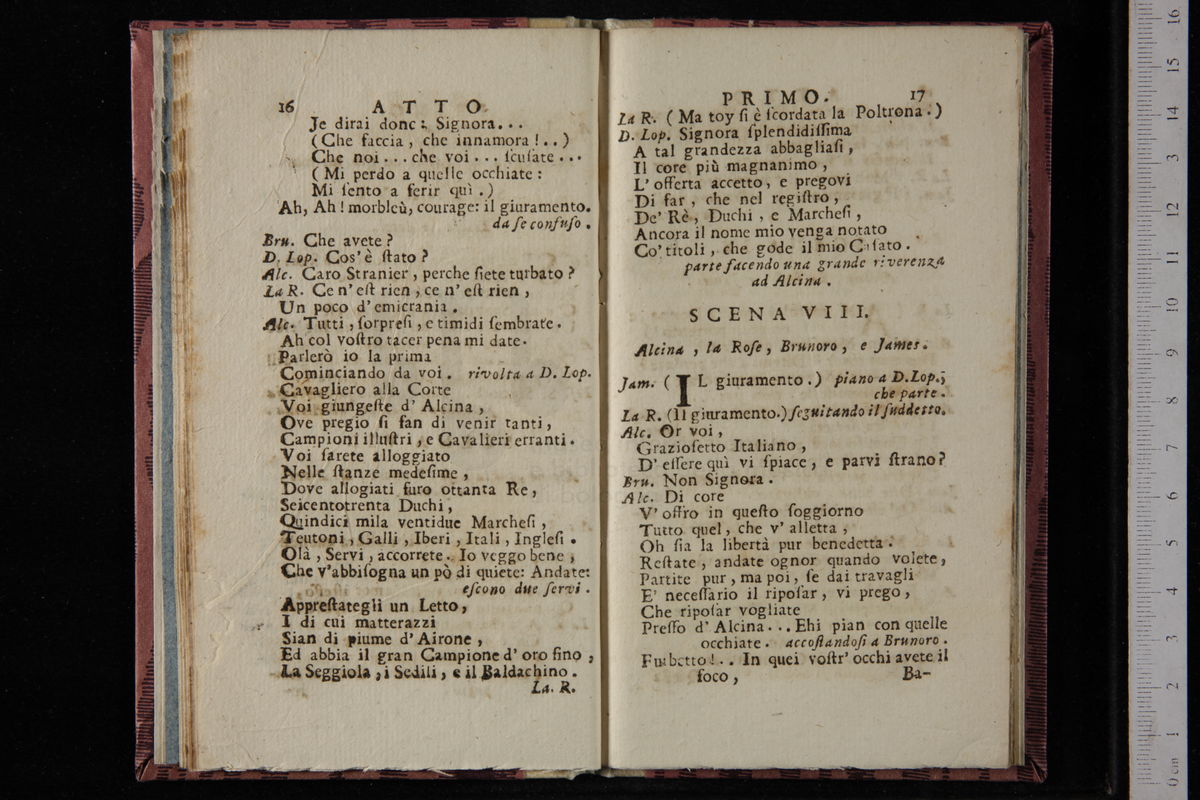 16 ATTO
Je dirai donc: Signora...
(Che faccia, che innamora!..)
Che noi... che voi... ſcuſate...
(Mi perdo a quelle occhiate:
Mi ſento a ferir quì.)
Ah, Ah! morbleù, courage: il giuramento.
da ſe confuſo.
Bru. Che avete?
D. Lop. Cos' è ſtato?
Alc. Caro Stranier, perche ſiete turbato?
La R. Ce n' eſt rien, ce n' eſt rien,
Un poco d' emicrania.
Alc. Tutti, ſorpreſi, e timidi ſembrate.
Ah col voſtro tacer pena mi date.
Parlerò io la prima
Cominciando da voi. rivolta a D. Lop.
Cavagliero alla Corte
Voi giungeſte d' Alcina,
Ove pregio ſi fan di venir tanti,
Campioni illuſtri, e Cavalieri erranti.
Voi ſarete alloggiato
Nelle ſtanze medeſime,
Dove allogiati furo ottanta Re,
Seicentotrenta Duchi,
Quindici mila ventidue Marcheſi,
Teutoni, Galli, Iberi, Itali, Ingleſi.
Olà, Servi, accorrete. Io veggo bene,
Che v'abbiſogna un pò di quiete: Andate:
eſcono due ſervi.
Appreſtategli un Letto,
I di cui matterazzi
Sian di piume d' Airone,
Ed abbia il gran Campione d' oro fino,
La Seggiola, i Sedili, e il Baldachino.
La. R.
PRIMO. 17
La R. (Ma toy ſi è ſcordata la Poltrona.)
D. Lop. Signora ſplendidiſſima
A tal grandezza abbagliaſi,
Il core più magnanimo,
L' offerta accetto, e pregovi
Di far, che nel regiſtro,
De' Rè, Duchi, e Marcheſi,
Ancora il nome mio venga notato
Co' titoli, che gode il mio Caſato.
parte facendo una grande riverenza
ad Alcina.
SCENA VIII.
Alcina, la Roſe, Brunoro, e James.
Jam. (IL giuramento.) piano a D.Lop.;
che parte.
La R. (Il giuramento.) ſeguitando il ſuddetto.
Alc. Or voi,
Grazioſetto Italiano,
D' eſſere quì vi ſpiace, e parvi ſtrano?
Bru. Non Signora.
Alc. Di core
V' offro in queſto ſoggiorno
Tutto quel, che v' alletta,
Oh ſia la libertà pur benedetta.
Reſtate, andate ognor quando volete,
Partite pur, ma poi, ſe dai travagli
E' neceſſario il ripoſar, vi prego,
Che ripoſar vogliate
Preſſo d' Alcina... Ehi pian con quelle
occhiate. accoſtandoſi a Brunoro.
Furbetto!.. In quei voſtr' occhi avete il
foco, Ba-